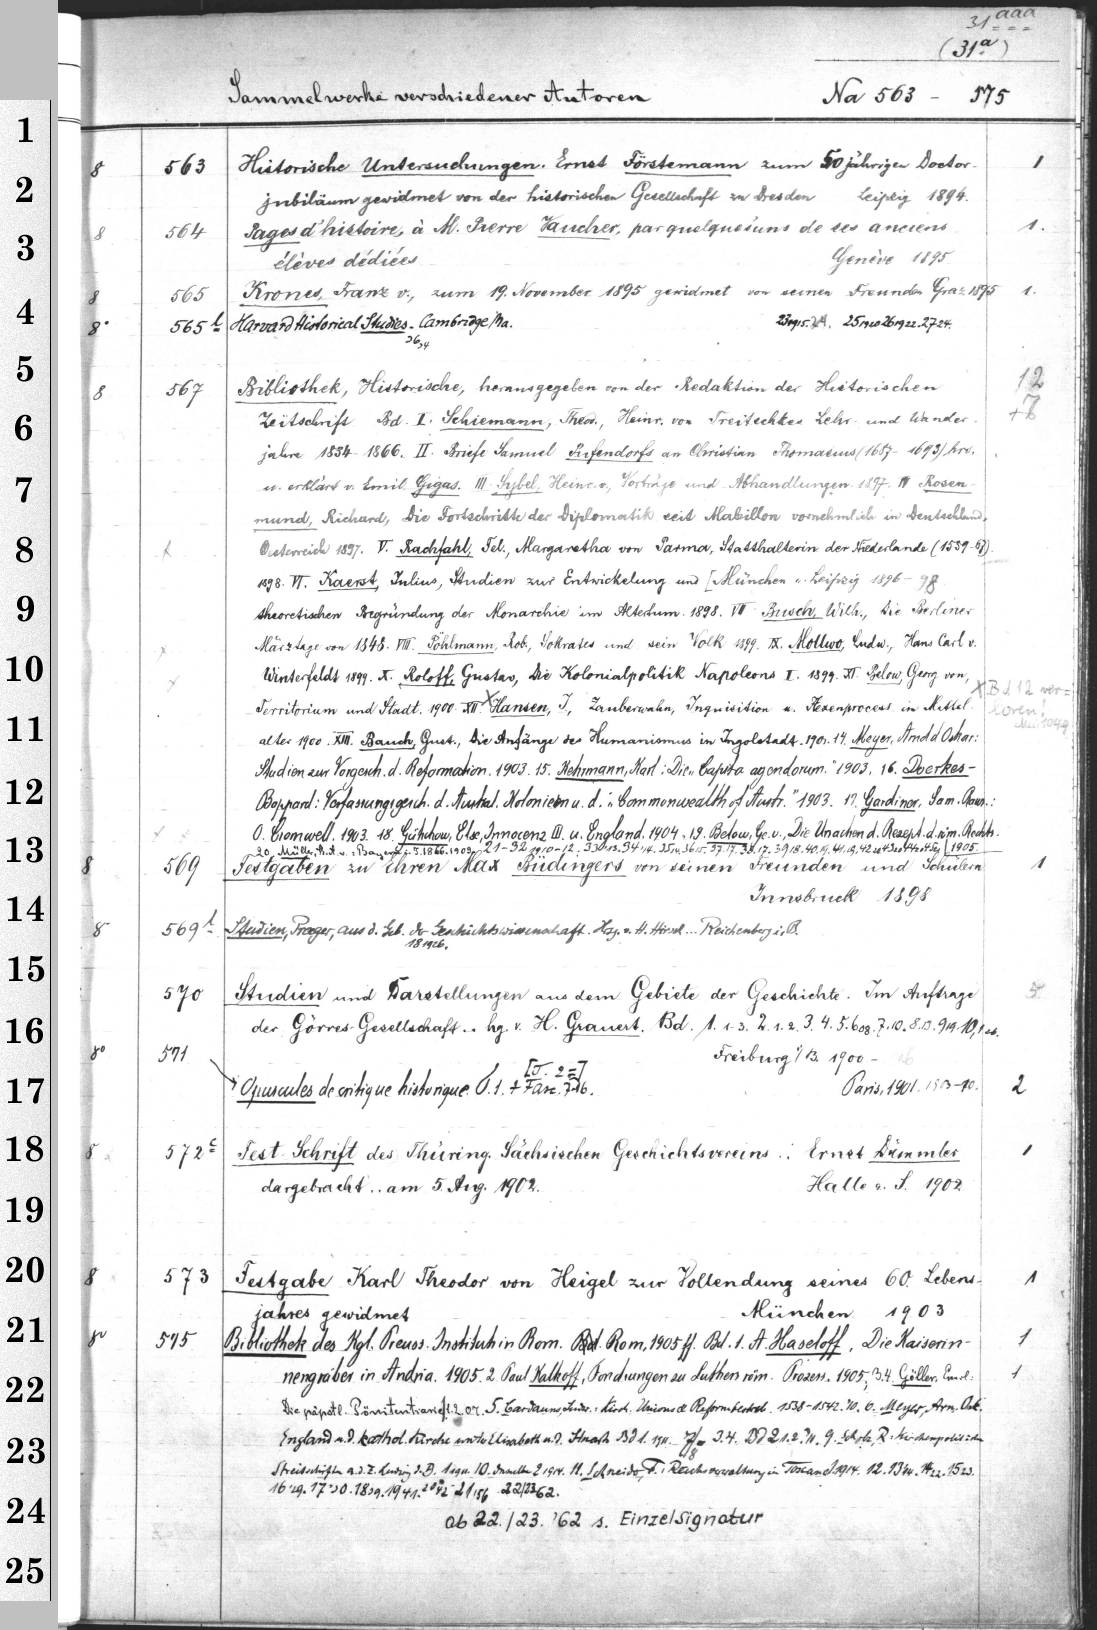 31 aaa
(31a)
Sammelwerke verschiedener Autoren Na 563 - 575
1
8 563 Historische Untersuchungen. Ernst Förstemann zum 50 jährigen Doctor- 1
2 jubiläum gewidmet von der historischen Gesellschaft zu Dresden Leipzig 1894.
8 564 Pages d'histoire, à M. Pierre Vaucher, par quelques uns de ses anciens 1.
3 élèves dédiées Genève 1895
8 565 Krones, Franz v., zum 19. November 1895 gewidmet von seinen Freunden Graz 1895 1.
4 8° 565 b Harvard Historical Studies. Cambridge/Ma.
5
8 567 Bibliothek, Historische, herausgegeben von der Redaktion der Historischen 12
6 Zeitschrift Bd. I. Schiemann, Theod., Heinr. von Treitschkes Lehr- und Wander- +7
jahre 1834-1866. II. Briefe Samuel Pufendorfs an Christian Thomasius (1687-1693) hrs.
7 u. erklärt v. Emil Gigas. III. Sybel, Heinr. v., Vorträge und Abhandlungen. 1897. IV Rosen-
mund, Richard, Die Fortschritte der Diplomatik seit Mabillon vornehmlich in Deutschland,
8 Oesterreich 1897. V. Rachfahl, Fel., Margaretha von Parma, Statthalterin der Niederlande (1559-67).
1898. VI. Kaerst, Julius, Studien zur Entwickelung und [München u. Leipzig 1896-98
9 theoretischen Begründung der Monarchie im Altertum. 1898. VII Busch, Wilh., Die Berliner
Märztage von 1848. VIII. Pöhlmann, Rob., Sokrates und sein Volk 1899. IX. Mollwo, Ludw., Hans Carl v.
10 Winterfeldt 1899. X. Roloff, Gustav, Die Kolonialpolitik Napoleons I. 1899. XI Below, Georg von,
Territorium und Stadt. 1900. XII X Hansen, J., Zauberwahn, Inquisition u. Hexenprocess in Mittel- X Bd 12 ver=
loren!
11 alter 1900. XIII. Bauch, Gust., Die Anfänge des Humanismus in Ingolstadt. 1901. 14. Meyer, Arnold Oskar:
Studien zur Vorgesch. d. Reformation. 1903. 15. Kehrmann, Karl: Die „Capita agendorum." 1903. 16. Doerkes-
12 Boppard: Verfassungsgesch. d. Austral. Kolonieen u. d. „Commonwealth of Austr." 1903. 17. Gardiner, Sam. Raws.:
O. Cromwell. 1903. 18. Gütschow, Else, Innocenz III. u. England. 1904. 19. Below, Ge. v., Die Ursachen d. Rezept. d. röm. Rechts.
13 [1905
8 569 Festgaben zu Ehren Max Büdingers von seinen Freunden und Schülern 1
14 Innsbruck 1898
8 569 b Studien, Prager, aus d. Geb. der Geschichtswissenschaft. Hrsg. v. H. Hirsch... Reichenberg i. B.
18 1926.
15
570 Studien und Darstellungen aus dem Gebiete der Geschichte. Im Auftrage 5
16 der Görres-Gesellschaft.. hg. v. H. Grauert. Bd. 1. 1-3. 2. 1.2. 3. 4. 5. 6
8° 571 Freiburg i/B. 1900-
[T. 2=]
17 Opuscules de critique historique. T. 1. + Fasc. 7-16. Paris, 1901. 1903-10. 2
18 8 572 c Fest-Schrift des Thüring. Sächsischen Geschichtsvereins .: Ernst Dümmler 1
dargebracht .. am 5. Aug. 1902. Halle a. S. 1902
19
20 8 573 Festgabe Karl Theodor von Heigel zur Vollendung seines 60. Lebens- 1
jahres gewidmet München 1903
21 8° 575 Bibliothek des Kgl. Preuss. Instituts in Rom. Bd. Rom, 1905 ff. Bd. 1. A. Haseloff, Die Kaiserin- 1
22 nengräber in Andria. 1905. 2. Paul Kalkoff, Forschungen zu Luthers röm. Prozess. 1905. 3.4. Göller, Emil: 1
Die päpstl. Pönitentiarie 1. 2. 07. 5. Cardauns, Ludw.: Kirch. Unions u. Reformbestreb. 1538-1542. 10. 6. Meyer, Arn. Osk.
23 England u. d. kathol. Kirche unter Elisabeth u. d. Stuarts Bd 1. 1911.
24
ab 22./23. '62 s. Einzelsignatur
25